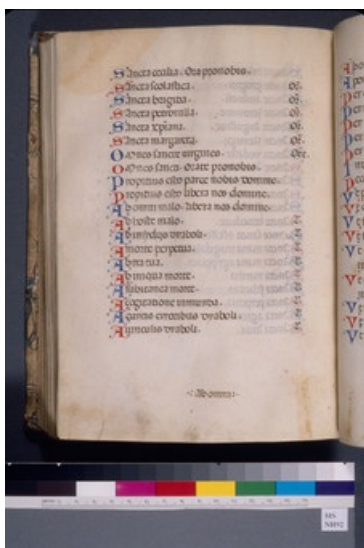 Sancta cecilia. Ora pro nobis.
Sancta scolastica. Or.
Sancta brigida. Or.
Sancta petronilla. Or.
Sancta xpiana. Or.
Sancta margareta. Or.
Omnes sancte uirgines. Ore.
Omnes sancti. Orate pro nobis.
Propitius esto parce nobis domine.
Propitius esto libera nos domine.
Ab omni malo. libera nos domine.
Ab hoste malo.
Ab insidijs diaboli.
A morte perpetua.
Ab ira tua.
Ab iniqua morte.
A subitanea morte.
A cogitatione inmunda.
A
A uinculis diaboli.
Ab omni
MS